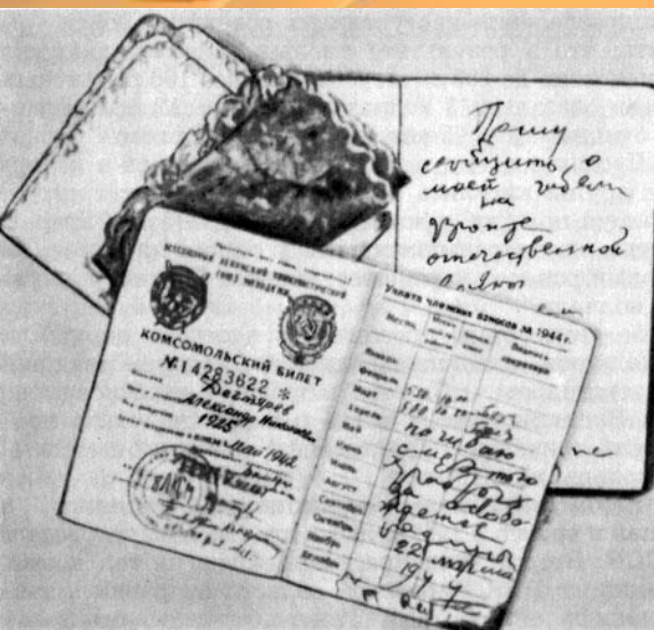 Прошу
сообщить о
моей гибели
на
фронте
отечественной
войны
ВСЕСОЮЗНЫЙ ЛЕНИНСКИЙ КОММУНИСТИЧЕСКИЙ
СОЮЗ МОЛОДЕЖИ
КОМСОМОЛЬСКИЙ БИЛЕТ
№14283622 *
Дегтярев
Александр Николаевич
1925
май 1942
Уплата членских взносов за 1944 г.
Месяц Подпись секретаря
Январь
Февраль
Март
Апрель
Май
Июнь
Июль
Август
Сентябрь
Октябрь
Ноябрь
Декабрь
погибаю
смертью
храбрых
за освобо
ждение
родины
22 марта